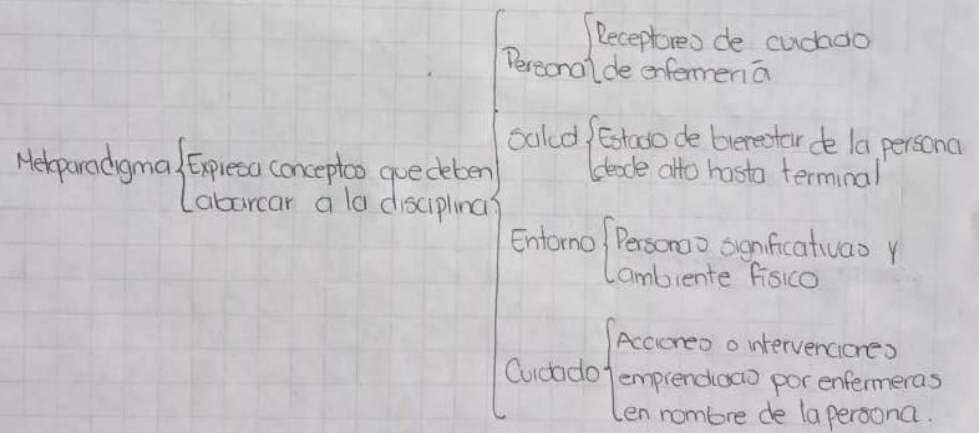 Metaparadigma { Expresa conceptos que deben
abarcar a la disciplina
Persona { Receptores de cuidado
de enfermería
Salud { Estado de bienestar de la persona
desde alto hasta terminal
Entorno { Personas significativas y
ambiente físico
Cuidado { Acciones o intervenciones
emprendidas por enfermeras
en nombre de la persona.